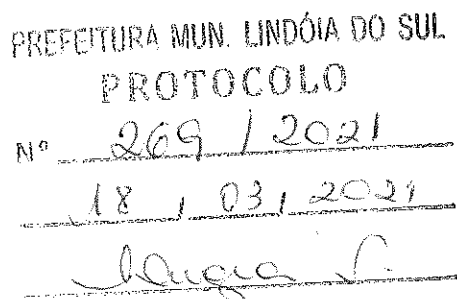 PREFEITURA MUN. LINDÓIA DO SUL
PROTOCOLO
Nº 269 / 2021
18 , 03 , 2021